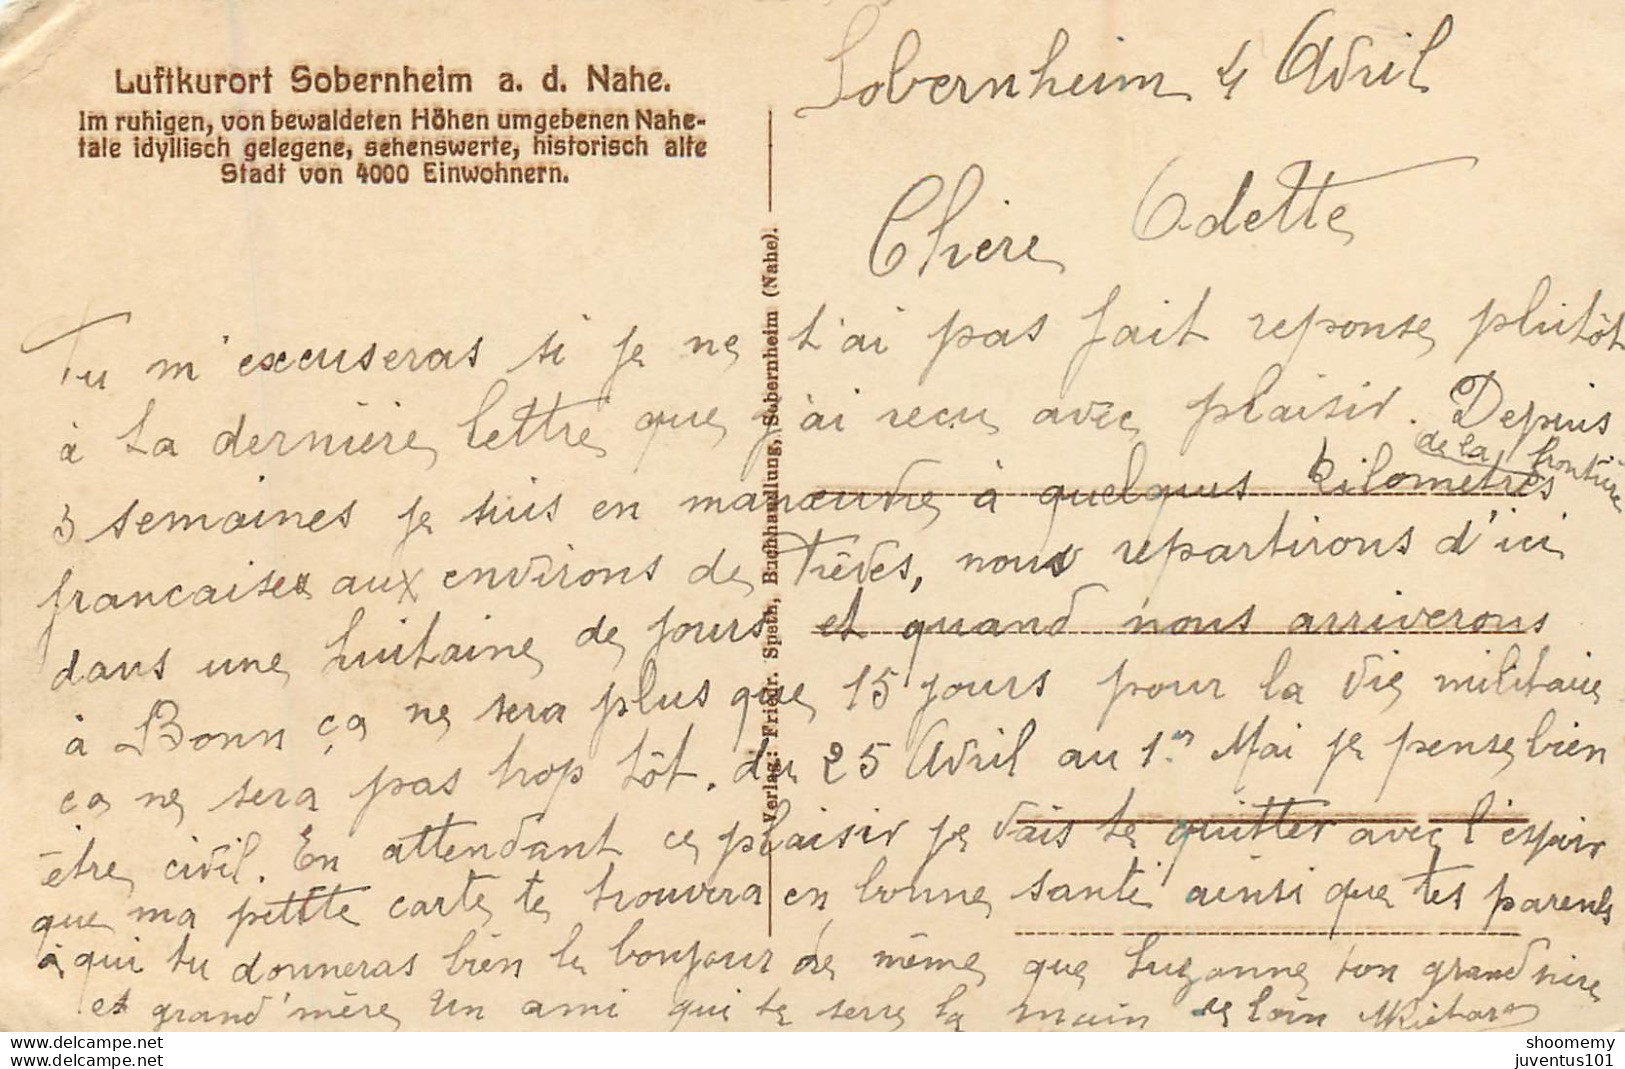 Luftkurort Sobernheim a. d. Nahe.
Im ruhigen, von bewaldeten Höhen umgebenen Nahe-
tale idyllisch gelegene, sehenswerte, historisch alte
Stadt von 4000 Einwohnern.
Verlag: Friedr. Spath, Buchhandlung, Sobernheim (Nahe).
Sobernheim 4 Avril
Chère Odette
Tu m'excuseras si je ne t'ai pas fait reponse plutôt
à ta dernière lettre que j'ai recu avec plaisir. Depuis
3 semaines je suis en manœuvre à quelques kilometres de la frontière
francaise aux environs de Trèves, nous repartirons d'ici
dans une huitaine de jours et quand nous arriverons
à Bonn ça ne sera plus que 15 jours pour la vie militaire
ca ne sera pas trop tôt. du 25 Avril au 1er Mai je pense bien
être civil. En attendant ce plaisir je vais te quitter avec l'espoir
que ma petite carte te trouvera en bonne santé ainsi que tes parents
à qui tu donneras bien le bonjour de même que Suzanne ton grand père
et grand'mère Un ami qui te serre la main de loin
shoomemy
juventus101